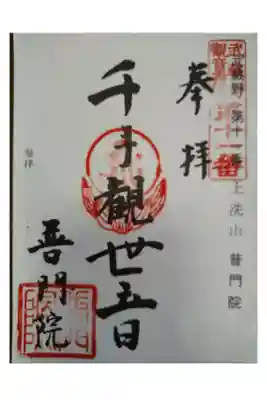 武蔵野 第十一番 上洗山 普門院
奉拝
千手觀世音
普門院